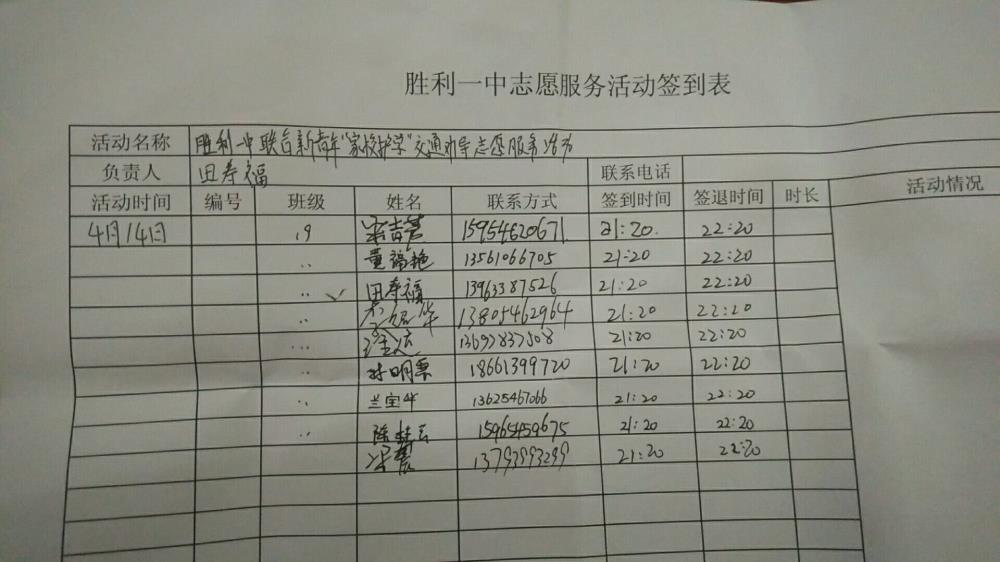 胜利一中志愿服务活动签到表
活动名称 胜利一中联合新青年"家校护学"交通劝导志愿服务活动
负责人 田寿福 联系电话
活动时间 编号 班级 姓名 联系方式 签到时间 签退时间 时长 活动情况
4月14日 19 15954620671 21:20 22:20
〃 董福艳 13561066705 21:20 22:20
〃 田寿福 13963387526 21:20 22:20
〃 13805462964 21:20 22:20
〃 21:20 22:20
〃 18661399720 21:20 22:20
〃 兰宝华 13625467066 21:20 22:20
〃 15965459675 21:20 22:20
梁 13793993299 21:20 22:20